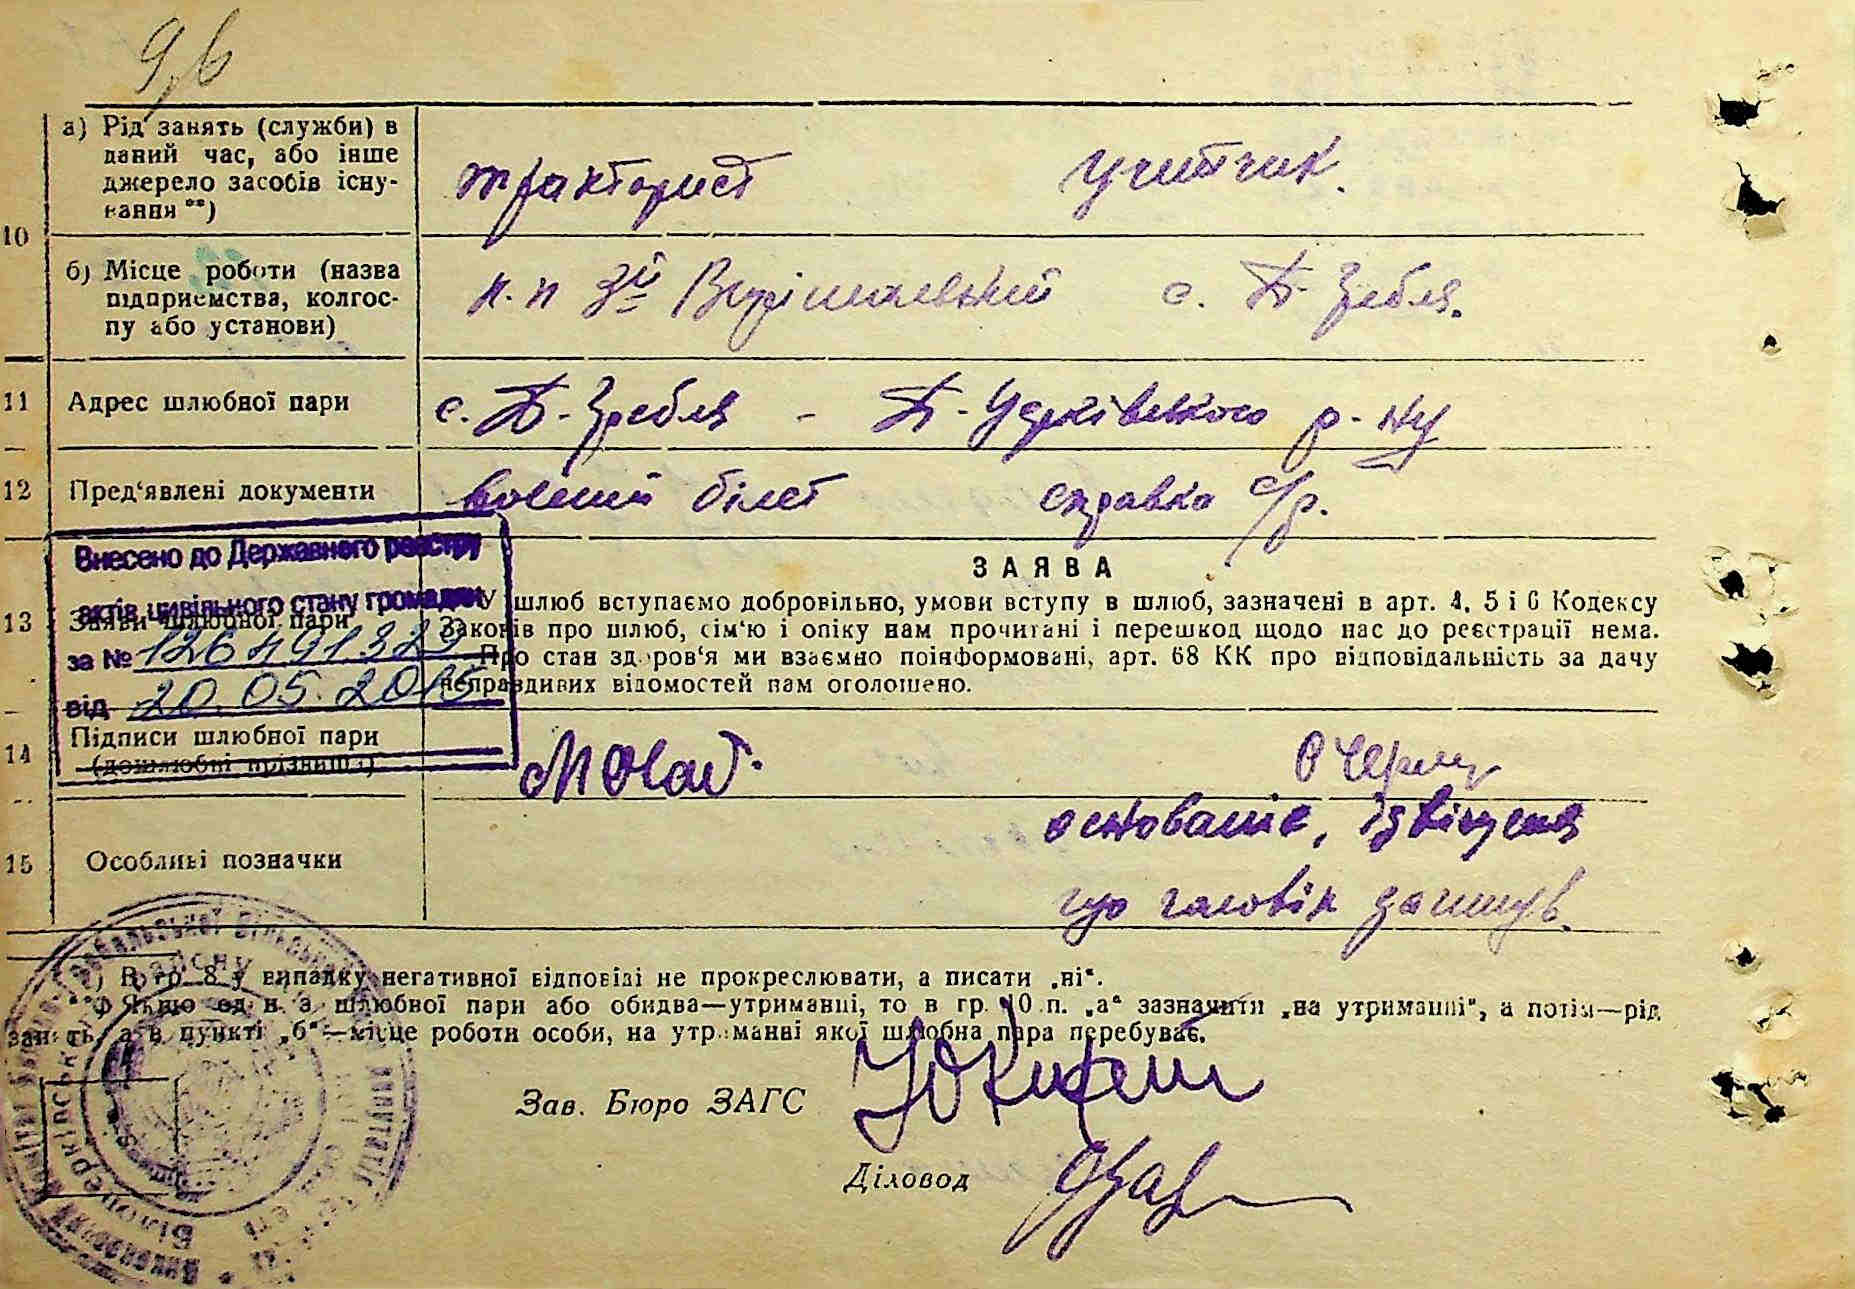 9,6
а) Рід занять (служби) в
даний час, або інше
джерело засобів існу-
вання **)
тракторист учотчик.
10
б) Місце роботи (назва
підприємства, колгос-
пу або установи)
с. Б. Гребля.
11 Адрес шлюбної пари
с. Б-Гребля - р-ну
12 Пред'явлені документи
воєний білет справка с/р.
Внесено до Державного реєстру
актів цивільного стану громадян
за № 126491323
від 20.05.2015
ЗАЯВА
13 Заяви шлюбної пари
У шлюб вступаємо добровільно, умови вступу в шлюб, зазначені в арт. 4, 5 і 6 Кодексу
Законів про шлюб, сім'ю і опіку нам прочитані і перешкод щодо нас до реєстрації нема.
Про стан здоров'я ми взаємно поінформовані, арт. 68 КК про відповідальність за дачу
неправдивих відомостей нам оголошено.
14 Підписи шлюбної пари
(дошлюбні прізвища)
15 Особливі позначки
що чоловік загинув.
*) В гр. 8 у випадку негативної відповіді не прокреслювати, а писати „ні“.
**) Якщо один з шлюбної пари або обидва—утриманці, то в гр. 10 п. „а“ зазначити „на утриманні“, а потім—рід
занять, а в пункті „б“—місце роботи особи, на утриманні якої шлюбна пара перебуває.
Зав. Бюро ЗАГС
Діловод